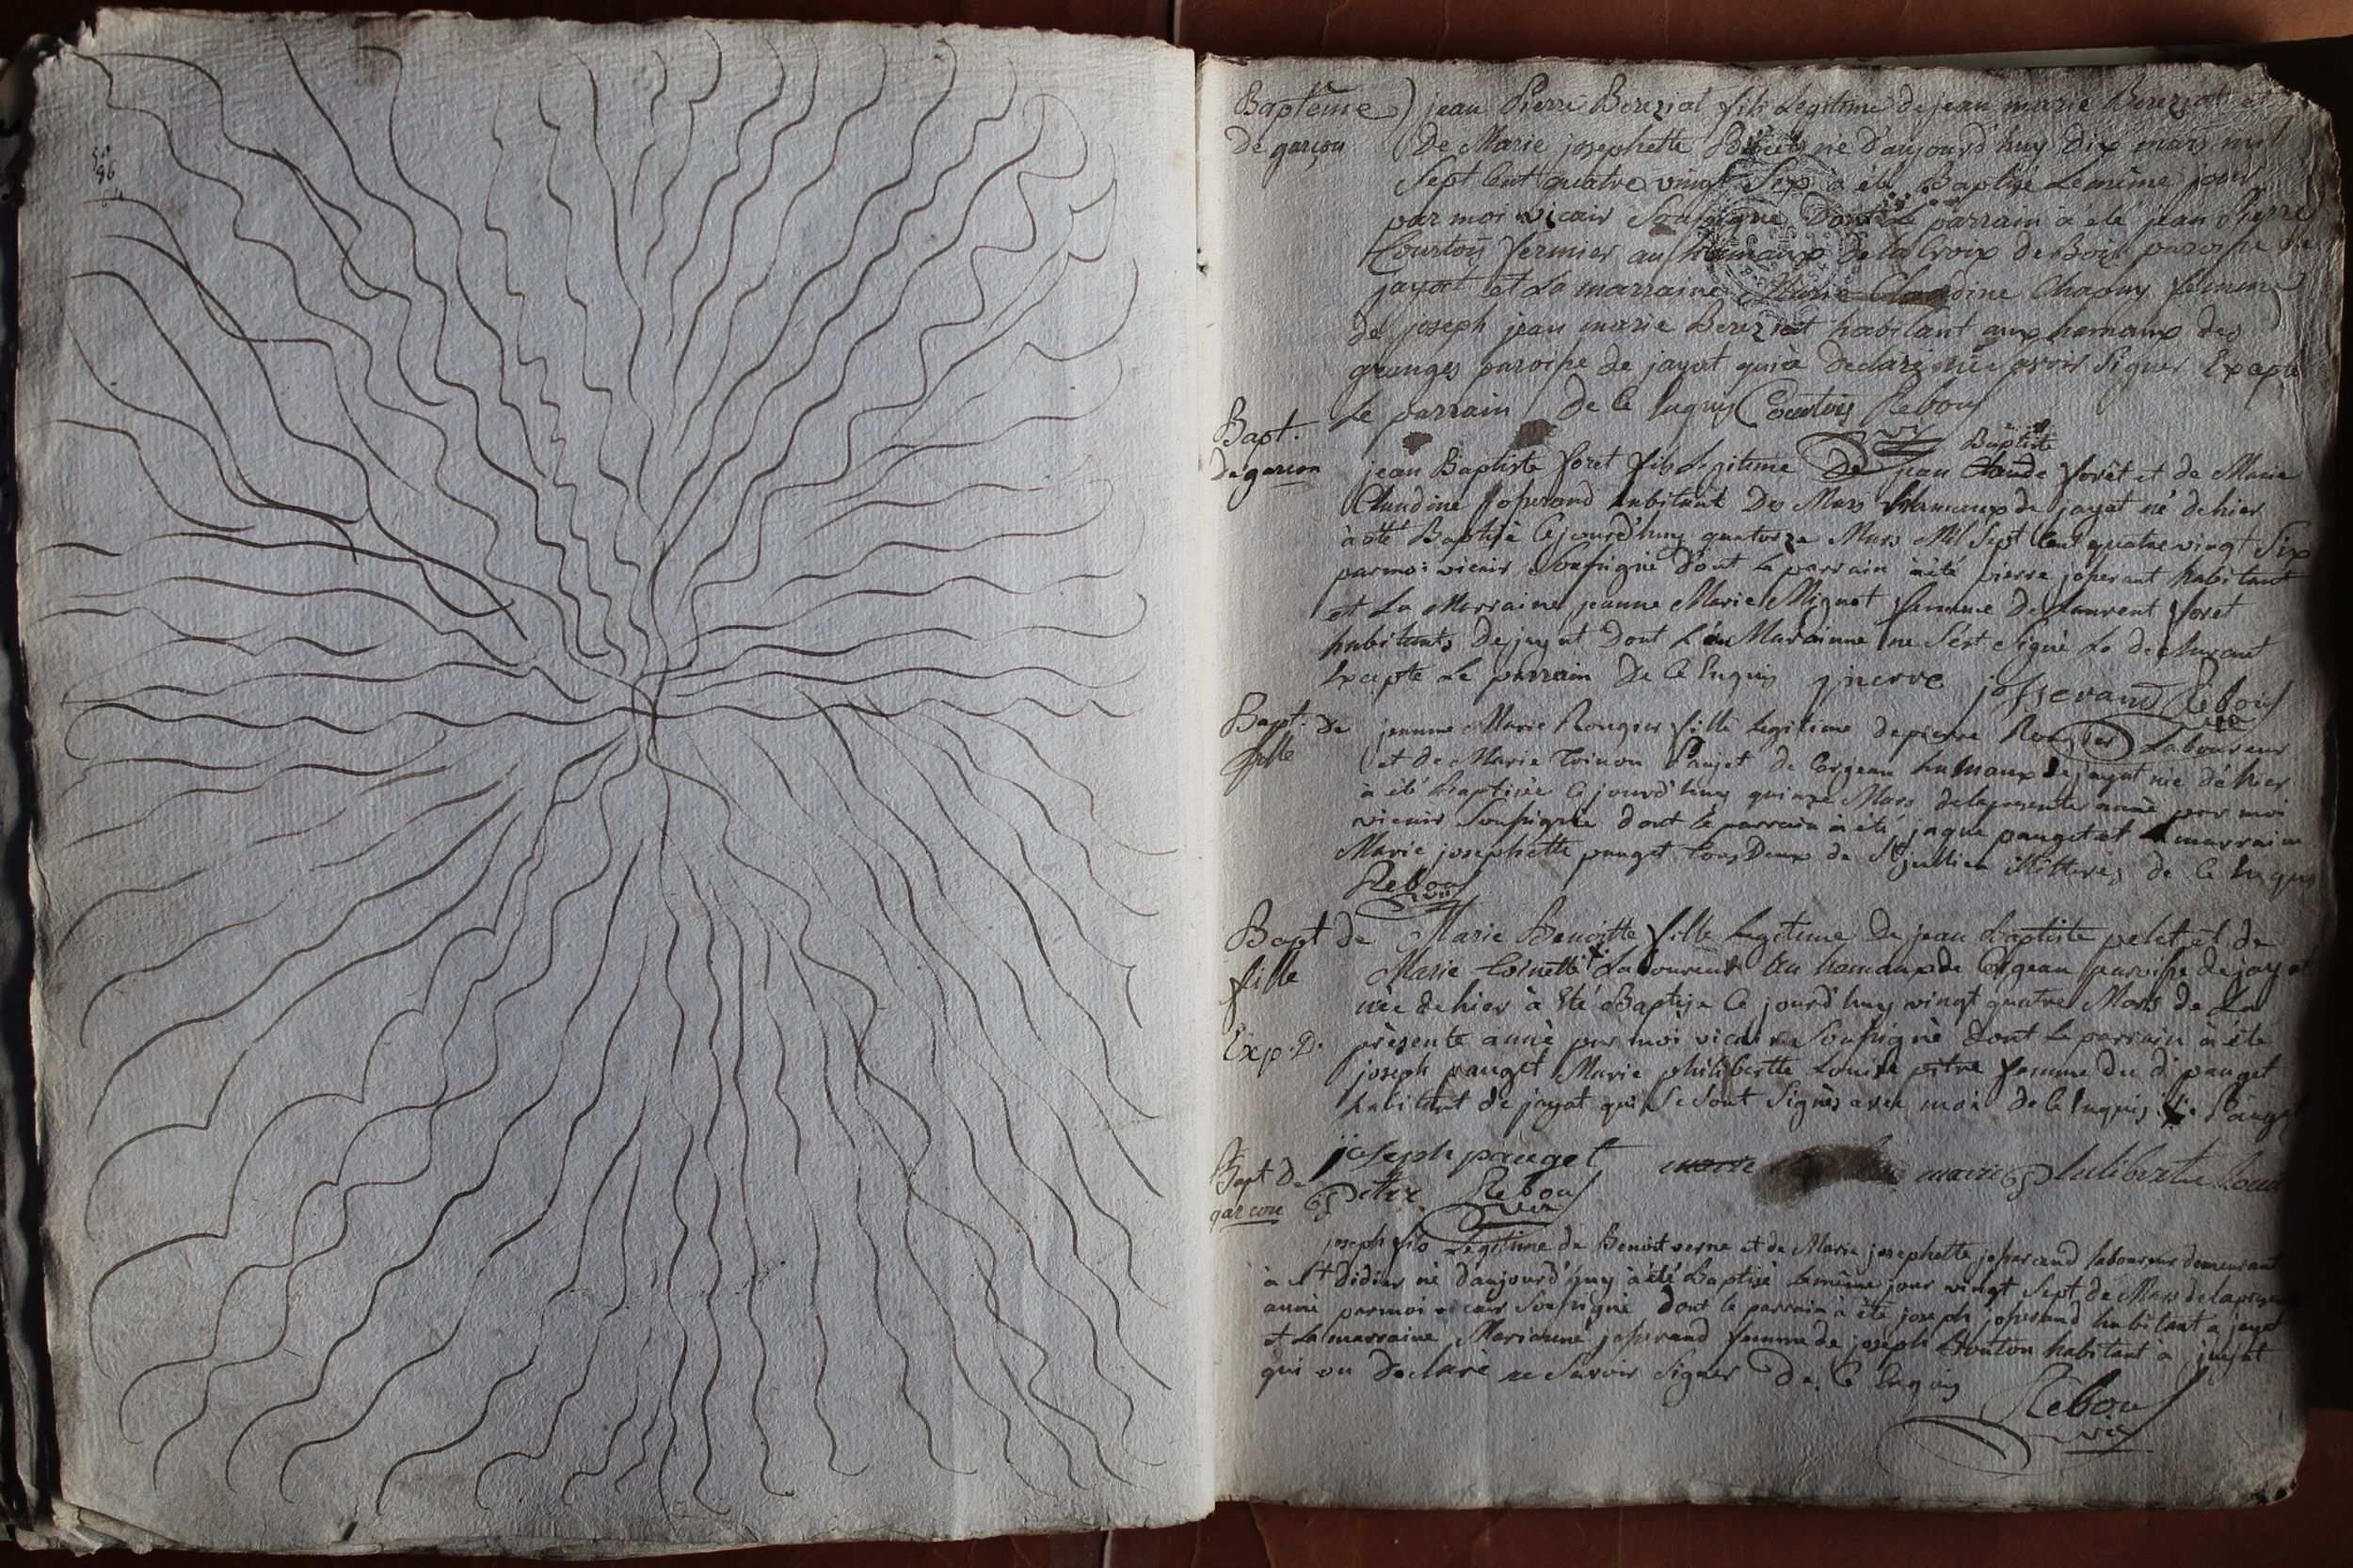 Baptême) jean Pierre Bereziat fils Legitime de jean marie Bereziat et
de garçon
De Marie josephette né d'aujourd'huy dix mars mil
Sept Cent quatre vingt Six à été Baptisé Le même jour
par moi vicair Soussigné Dont Le parrain à été jean Pierre
Courtois fermier au hamaux de la Croix de Bois paroisse de
jayat et La marraine Marie Claudine Chapuy femme
de joseph jean marie Bereziat habitant aux hamaux des
granges paroisse de jayat qui à declaré ne savoir Signer Excepte
Le parrain De Ce Enquis Courtois Rebou
Bapt.
De garcon
Baptiste
jean Baptiste foret fils Legitime De jean Claude forêt et de Marie
Claudine josserand habitant Des Mars hamaux de jayat né de hier
à été Baptisé Cejourd'huy quatorze Mars Mil Sept Cent quatre vingt Six
par moi vicair Soussigné Dont Le parrain à été pierre josserant habitant
et La Marraine jeanne Marie Mignot femme De Laurent foret
habitants de jayat Dont La Marainne ne S'est Signé Le déclarant
Excepte Le parrain De Ce Enquis pierre josserand Rebou
vic
Bapt. De
fille
jeanne Marie Rougier fille Legitime de pierre Rougier Laboureur
et de Marie Toinon Pauget de Corgeau hamaux de jayat née de hier
à été baptisée Ce jourd'huy quinze Mars de la presente année par moi
vicair Soussigné dont le parrain à été jaque pauget et marraine
Marie josephette pauget tous Deux de St jullien illitterés de Ce Enquis
Rebou
vic
Bapt de
fille
Exp. D.
Marie Benoitte fille Legitime De jean Baptiste pelet et de
Marie toinette Laboureur Au hamaux de Corgeau paroisse de jayat
née de hier à Eté Baptisé Ce jourd'huy vingt quatre Mars de La
présente année par moi vicaire Soussigné Dont Le parrain à été
joseph pauget Marie philibertte Louise pitre femme du d pauget
habitant de jayat qui Se Sont Signés avec moi de Ce Enquis Pauget
joseph pauget marie marie philiberte Loui
Pitre Rebou
vic
Bapt De
garcon
joseph fils Légitime de Benoit verne et de Marie josephette josserand laboureur demeurant
à St didier né d'aujourd'huy à été Baptisé Le même jour vingt Sept de Mars de la presente
année par moi vicair Soussigné Dont le parrain à été joseph josserand habitant a jayat
et La marraine Marianne josserand femme de joseph Bouton habitant a jayat
qui on Declaré ne Savoir Signer De Ce Enquis
Rebou
vic